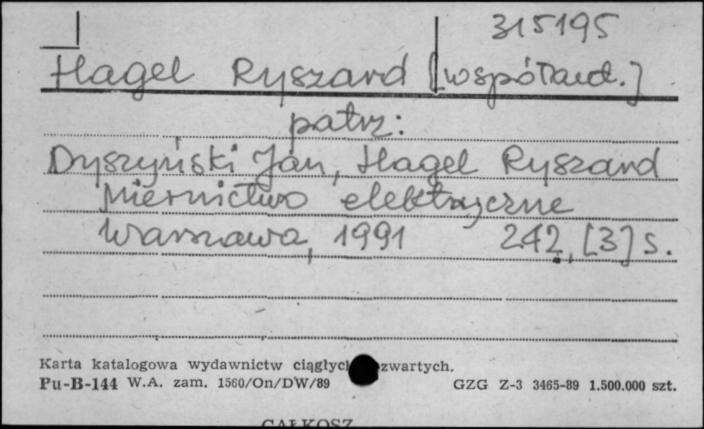 315195
Hagel Ryszard [współaut.]
patrz:
Dyszyński Jan, Hagel Ryszard
Miernictwo elektryczne
Warszawa, 1991 242, [3] s.
Karta katalogowa wydawnictw ciągłych zwartych.
Pu-B-144 W.A. zam. 1560/On/DW/89 GZG Z-3 3465-89 1.500.000 szt.